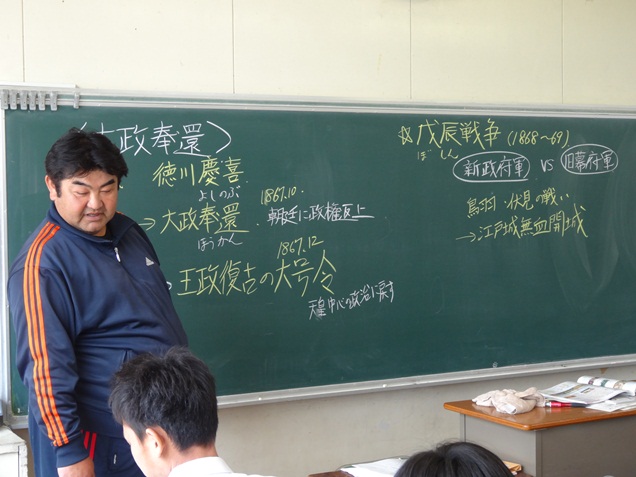 〈大政奉還〉
徳川慶喜
よしのぶ
1867.10
→大政奉還 朝廷に政権返上
ほうかん
1867.12
→王政復古の大号令
天皇中心の政治に戻す
☆戊辰戦争(1868〜69)
ぼしん
新政府軍 VS 旧幕府軍
鳥羽・伏見の戦い
→江戸城無血開城